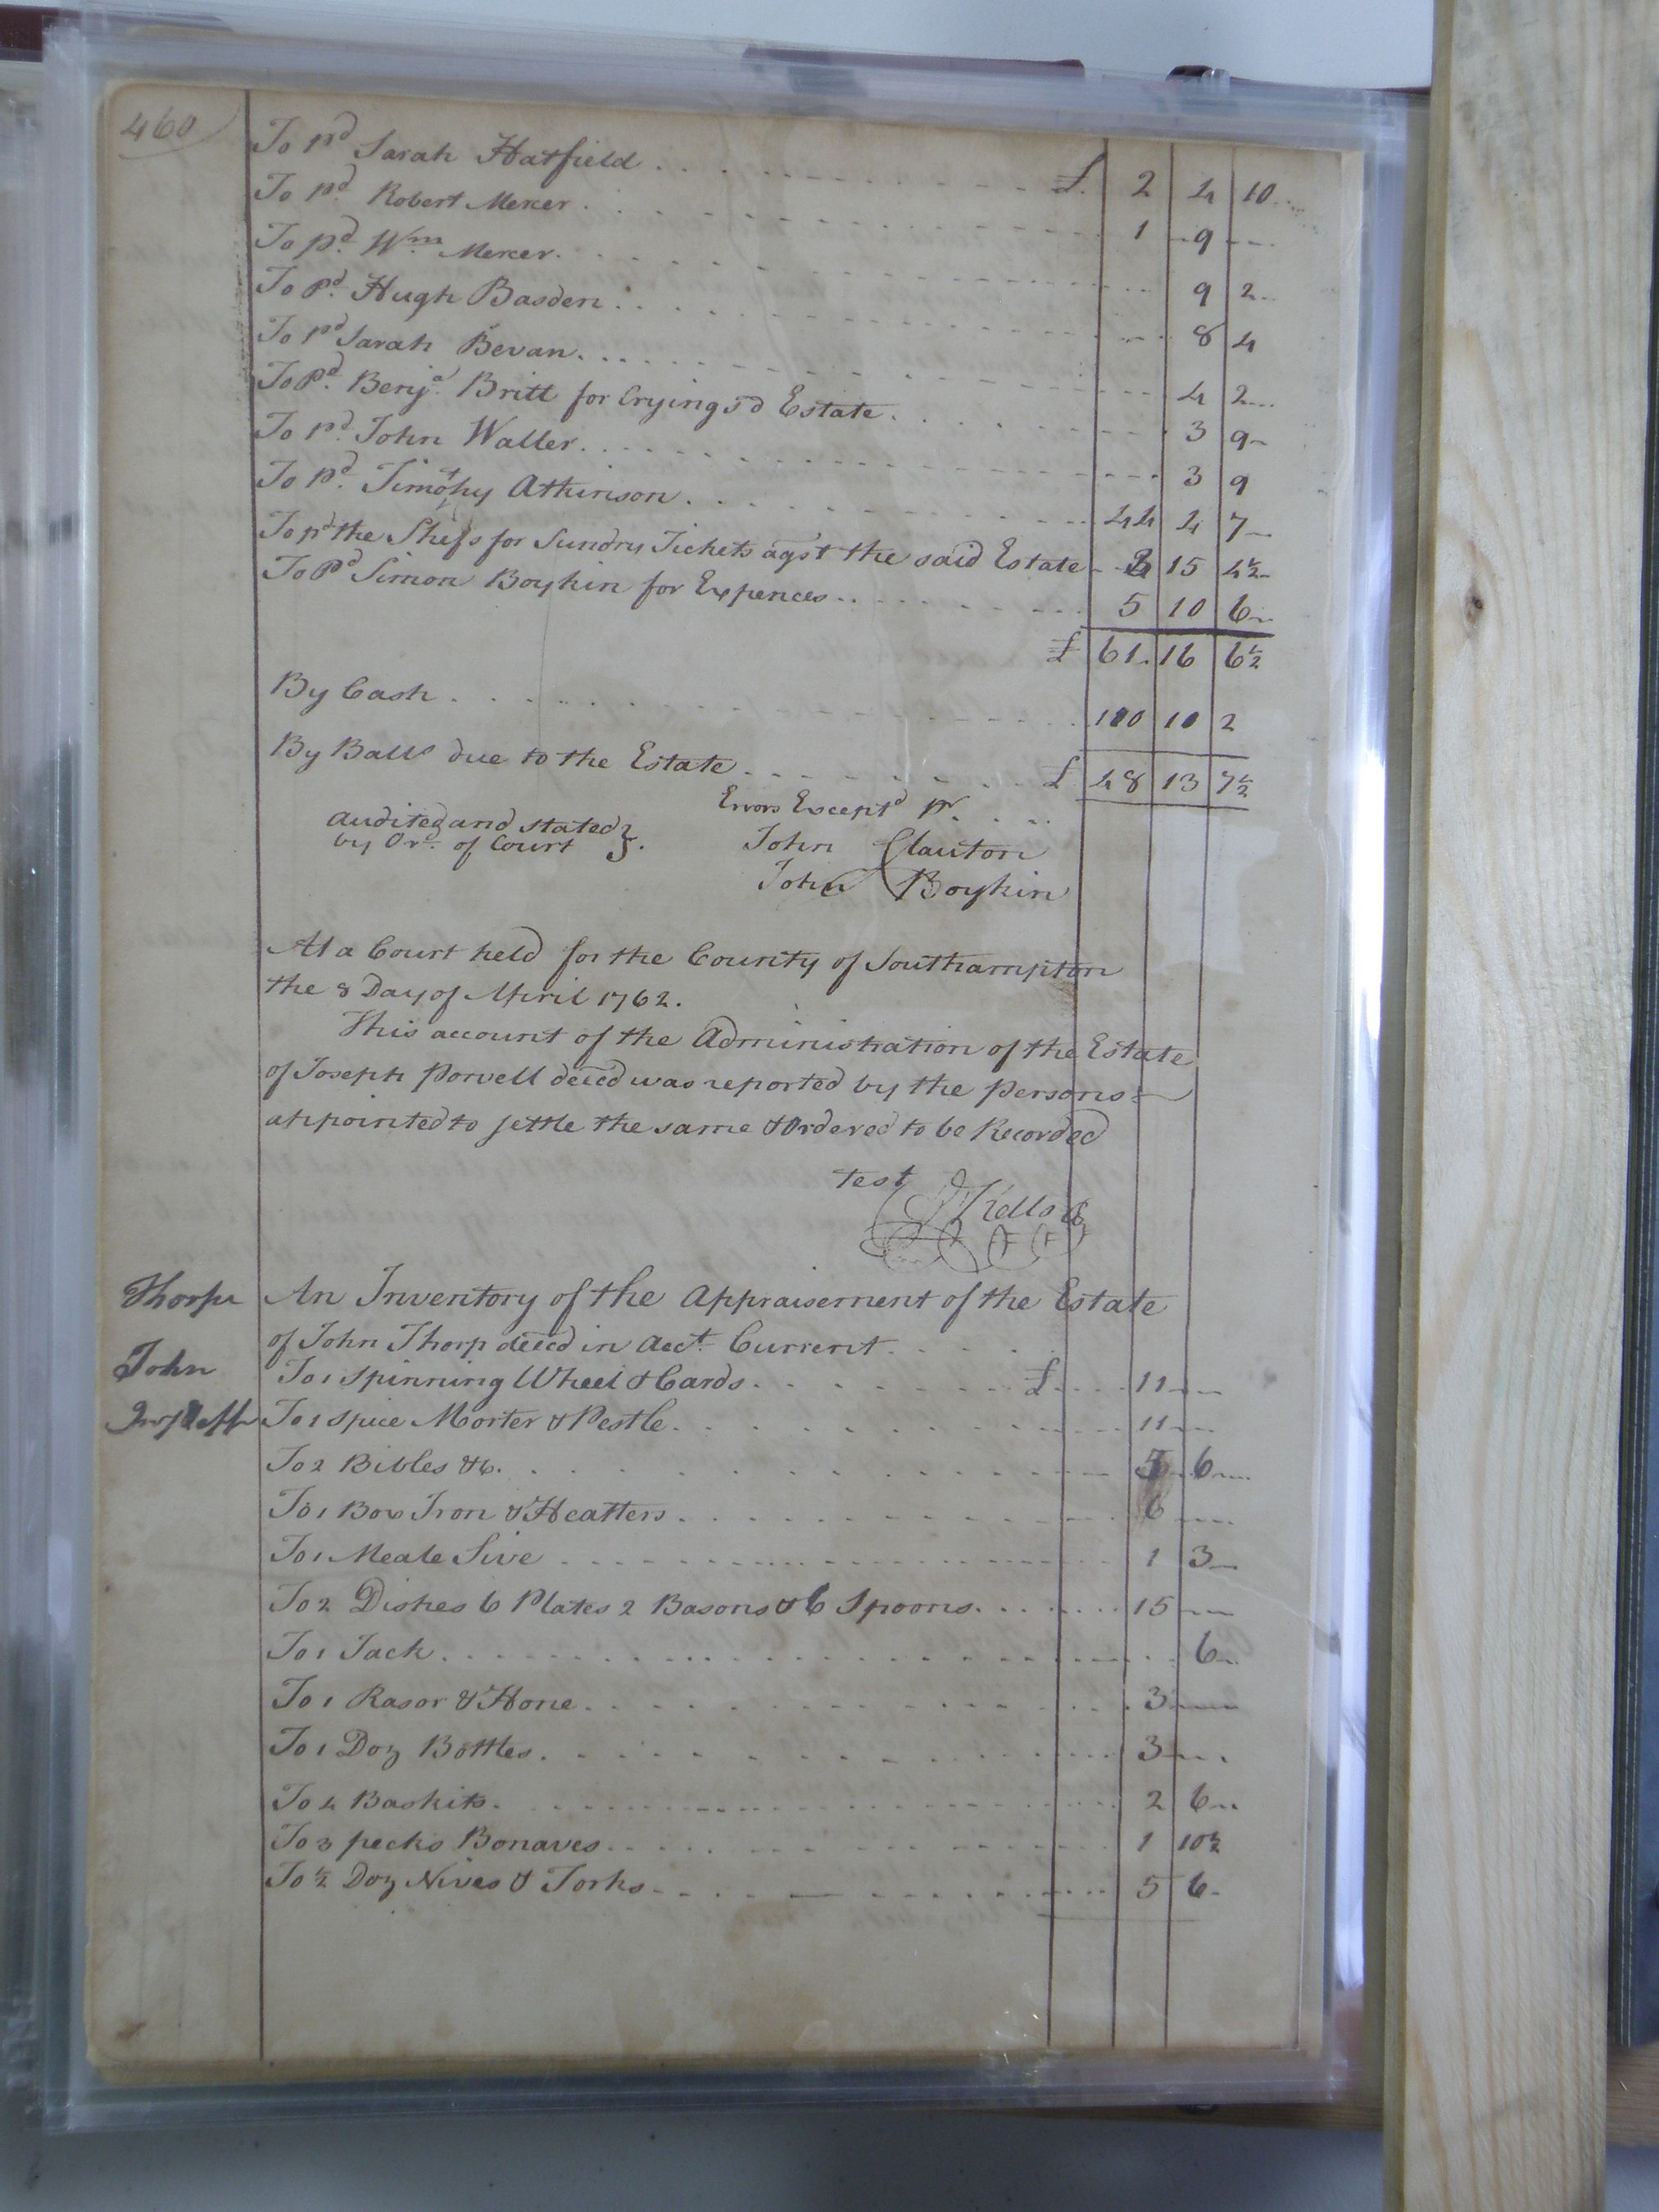 460
To pd Sarah Hatfield . . . £. 2 4 10
To pd. Robert Mercer . . . 1 9
To pd. Wm. Mercer . . . 9 2
To Pd. Hugh Basden . . . 8 4
To pd Sarah Bevan . . . 4 2
To Pd. Benja. Britt for Crying sd Estate . . . 3 9
To pd. John Waller . . . 3 9
To pd. Timothy Atkinson . . . 44 4 7
To pd the Shefs for Sundry Tickets agst the said Estate 15 4½
To Pd Simon Boykin for Expences . . . 5 10 6
£ 61. 16 6½
By Cash . . . 110 10 2
By Balls due to the Estate . . . £ 48 13 7½
Errors Exceptd pr. . .
Audited and stated } John Clauton
by Or. of Court }. John Boykin
At a Court held for the County of Southampton
the 8 Day of April 1762.
This account of the Administration of the Estate
of Joseph Porvell decd was reported by the Persons
appointed to settle the same & Ordered to be Recorded
Test
Kello
Thorpe An Inventory of the Appraisement of the Estate
of John Thorp decd in Acct. Current . . .
John To 1 Spinning Wheel & Cards . . . £ 11
To 1 Spice Morter & Pestle . . . 11
To 2 Bibles &c. . . . 5 6
To 1 Box Iron & Heatters . . . 6
To 1 Meale Sive . . . 1 3
To 2 Dishes 6 Plates 2 Basons & 6 Spoons . . . 15
To 1 Jack . . . 6
To 1 Rasor & Hone . . . 3
To 1 Doz Bottles . . . 3
To 4 Baskits . . . 2 6
To 3 pecks Bonaves . . . 1 10½
To ½ Doz Nives & Forks . . . 5 6